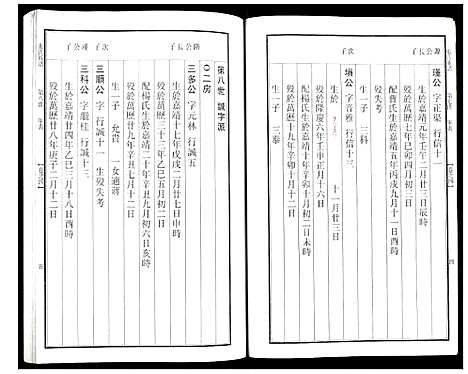 源公長子
瑾公 字正渠 行信十一
生於嘉靖元年壬午二月廿三日辰時
歿於萬曆七年己卯四月初二日
配曹氏生於嘉靖五年丙戌九月十一日酉時
歿失考
生一子 三科
次子
塤公 字音雅 行信十三
生於 十一月廿三日
歿於隆慶六年壬申正月十一日
配楊氏生於嘉靖十年辛卯十月初二日未時
歿於萬曆十九年辛卯十月初一日
生一子 三泰
四
第八世 誠字派
〇二房
隆公長子
三多公 字元林 行誠五
生於嘉靖十七年戊戌二月廿七日申時
歿於萬曆三十三年乙巳五月初二日
配楊氏生於嘉靖二十年辛丑九月初六日亥時
歿於萬曆廿九年辛丑七月十二日
生一子 允貴 一女適蔣
次子
三順公 字 行誠十一 生歿失考
瑾公子
三科公 字賜桂 行誠十三
生於嘉靖廿四年乙巳三月十八日酉時
歿於萬曆廿八年庚子二月十二日
五